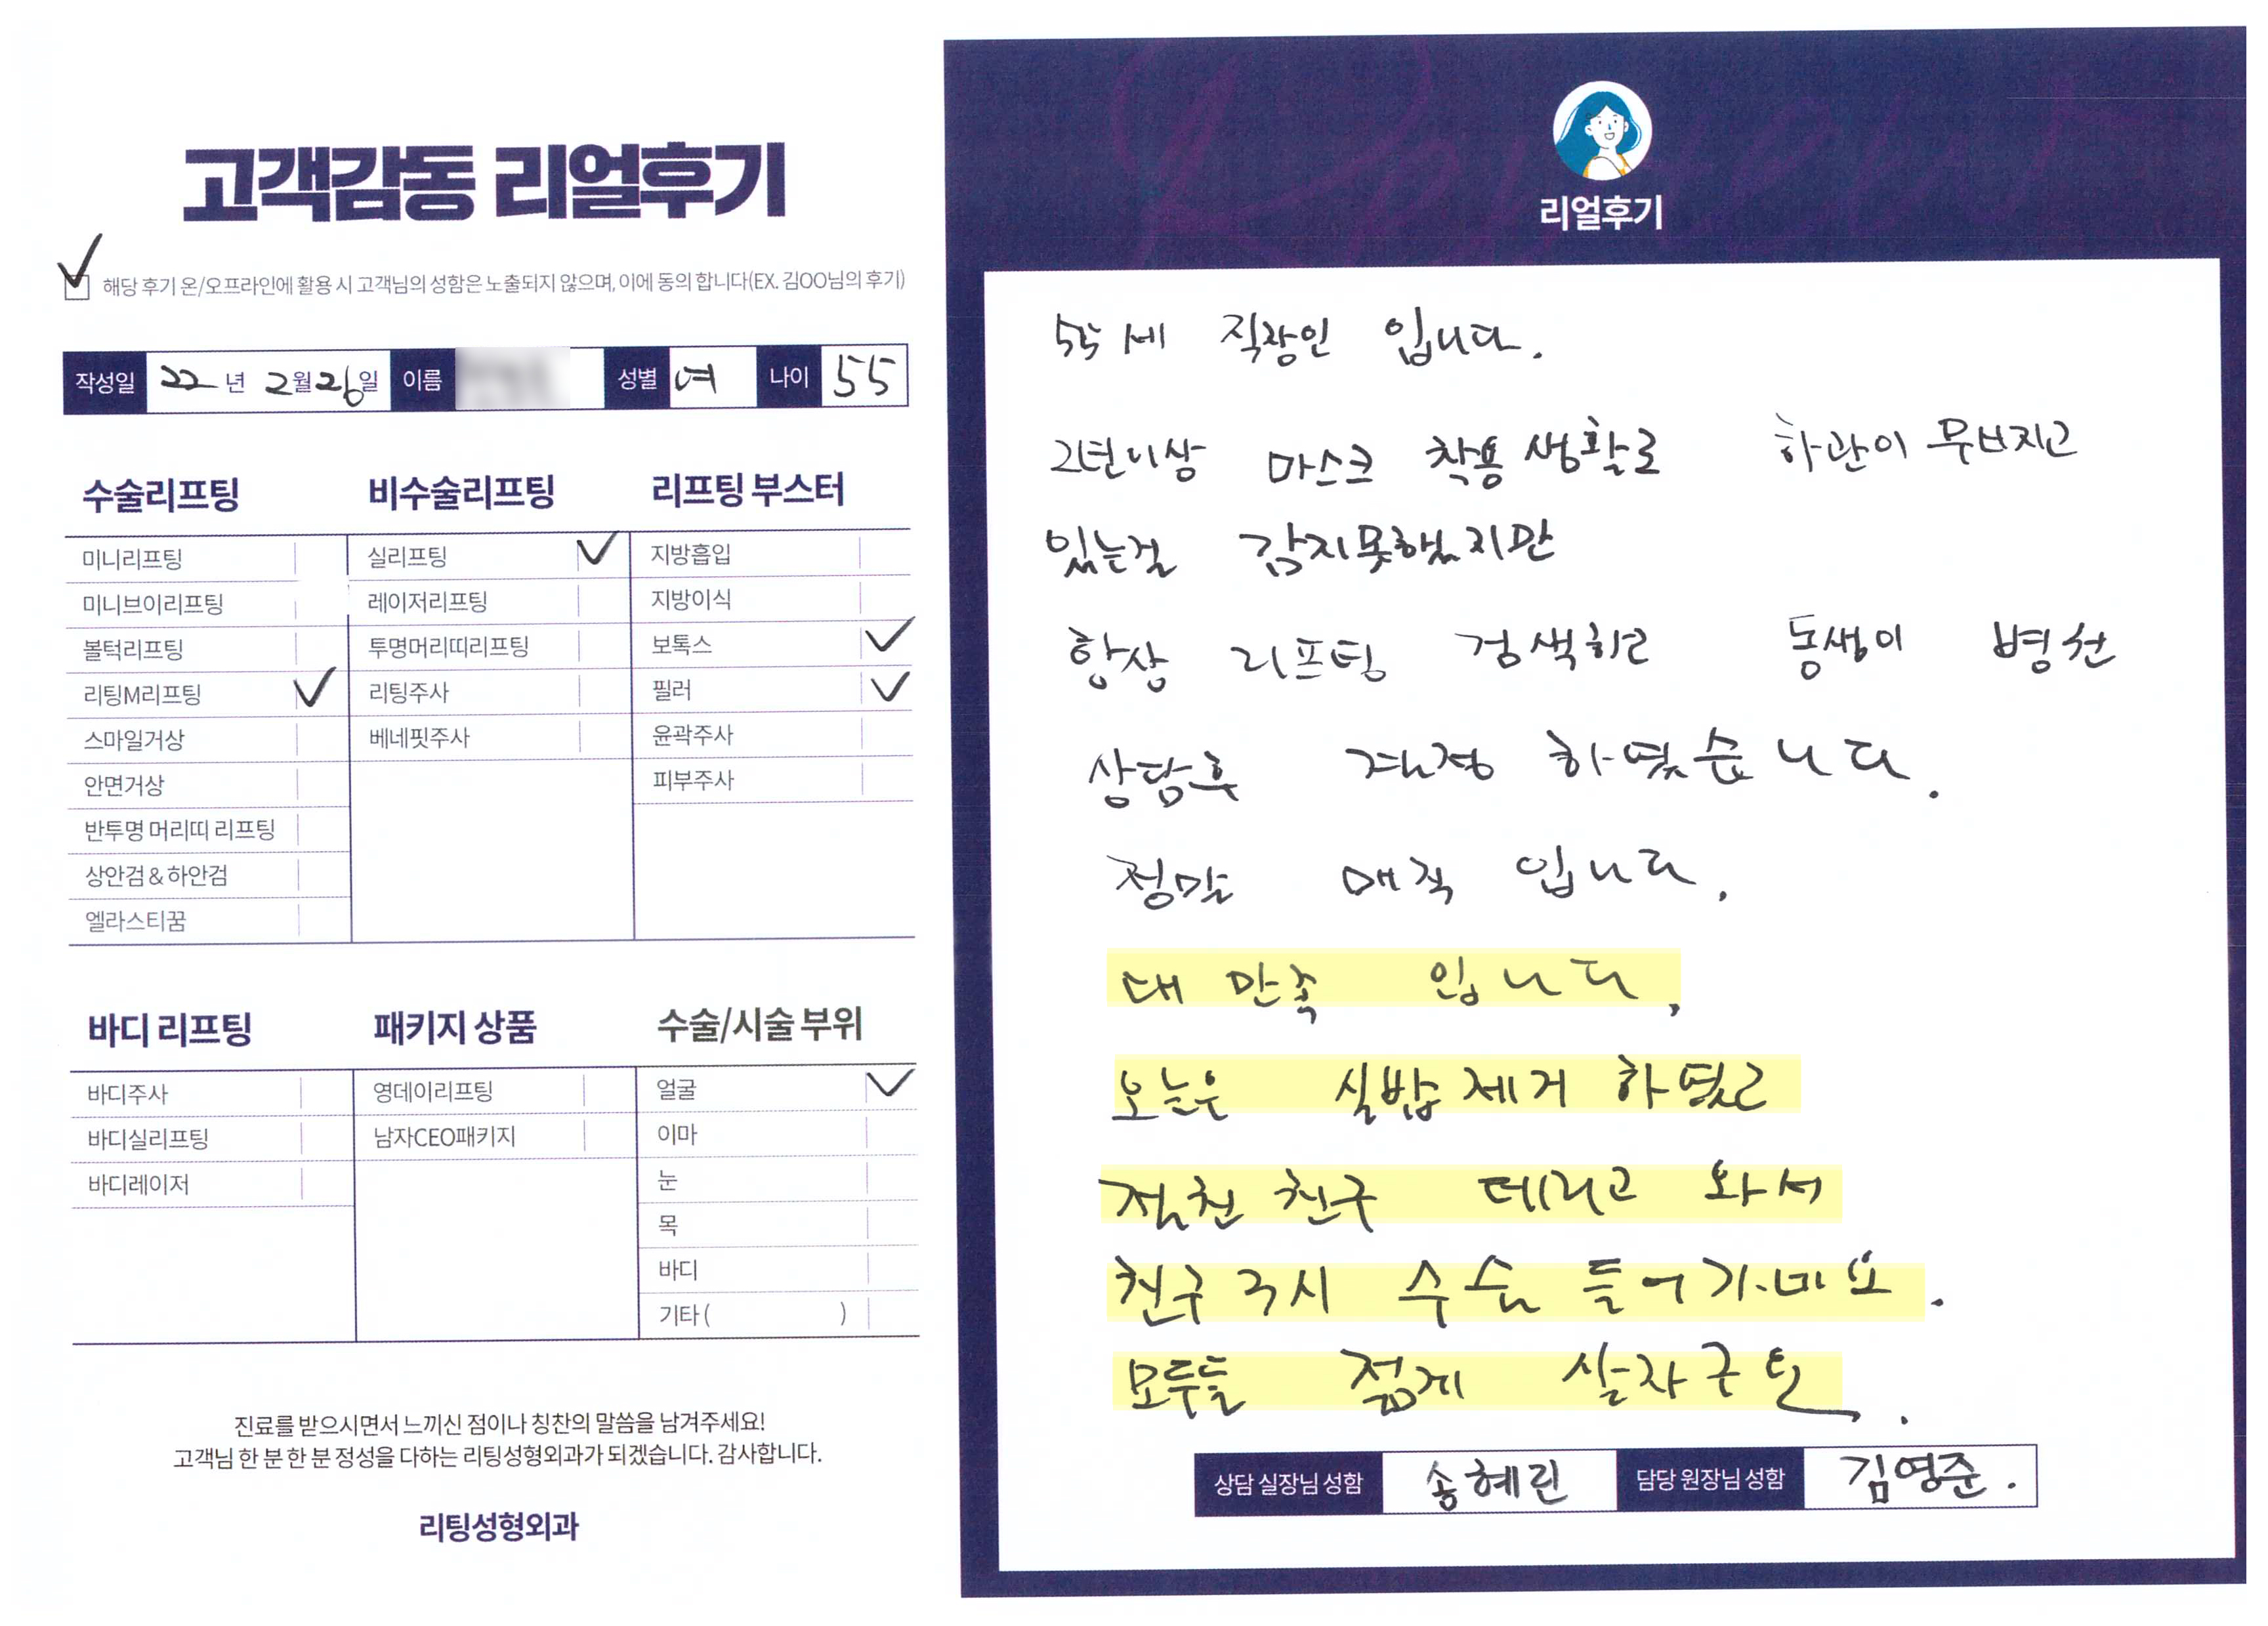 고객감동 리얼후기
해당 후기 온/오프라인에 활용 시 고객님의 성함은 노출되지 않으며, 이에 동의 합니다(EX. 김OO님의 후기)
작성일 22년 2월 26일 이름 성별 여 나이 55
수술리프팅
미니리프팅
미니브이리프팅
볼턱리프팅
리팅M리프팅
스마일거상
안면거상
반투명 머리띠 리프팅
상안검 & 하안검
엘라스티꿈
비수술리프팅
실리프팅
레이저리프팅
투명머리띠리프팅
리팅주사
베네핏주사
리프팅 부스터
지방흡입
지방이식
보톡스
필러
윤곽주사
피부주사
바디 리프팅
바디주사
바디실리프팅
바디레이저
패키지 상품
영데이리프팅
남자CEO패키지
수술/시술 부위
얼굴
이마
눈
목
바디
기타 ( )
진료를 받으시면서 느끼신 점이나 칭찬의 말씀을 남겨주세요!
고객님 한 분 한 분 정성을 다하는 리팅성형외과가 되겠습니다. 감사합니다.
리팅성형외과
리얼후기
55세 직장인 입니다.
2년이상 마스크 착용 생활로 하관이 무너지고
있는걸 감지못했지만
항상 리프팅 검색하고 동생이 병원
상담후 결정 하였습니다.
정말 매직 입니다.
대 만족 입니다.
오늘은 실밥제거 하였고
절친 친구 데리고 와서
친구 즉시 수술 들어가네요.
모두들 젊게 살자구요.
상담 실장님 성함 송혜린 담당 원장님 성함 김영준.